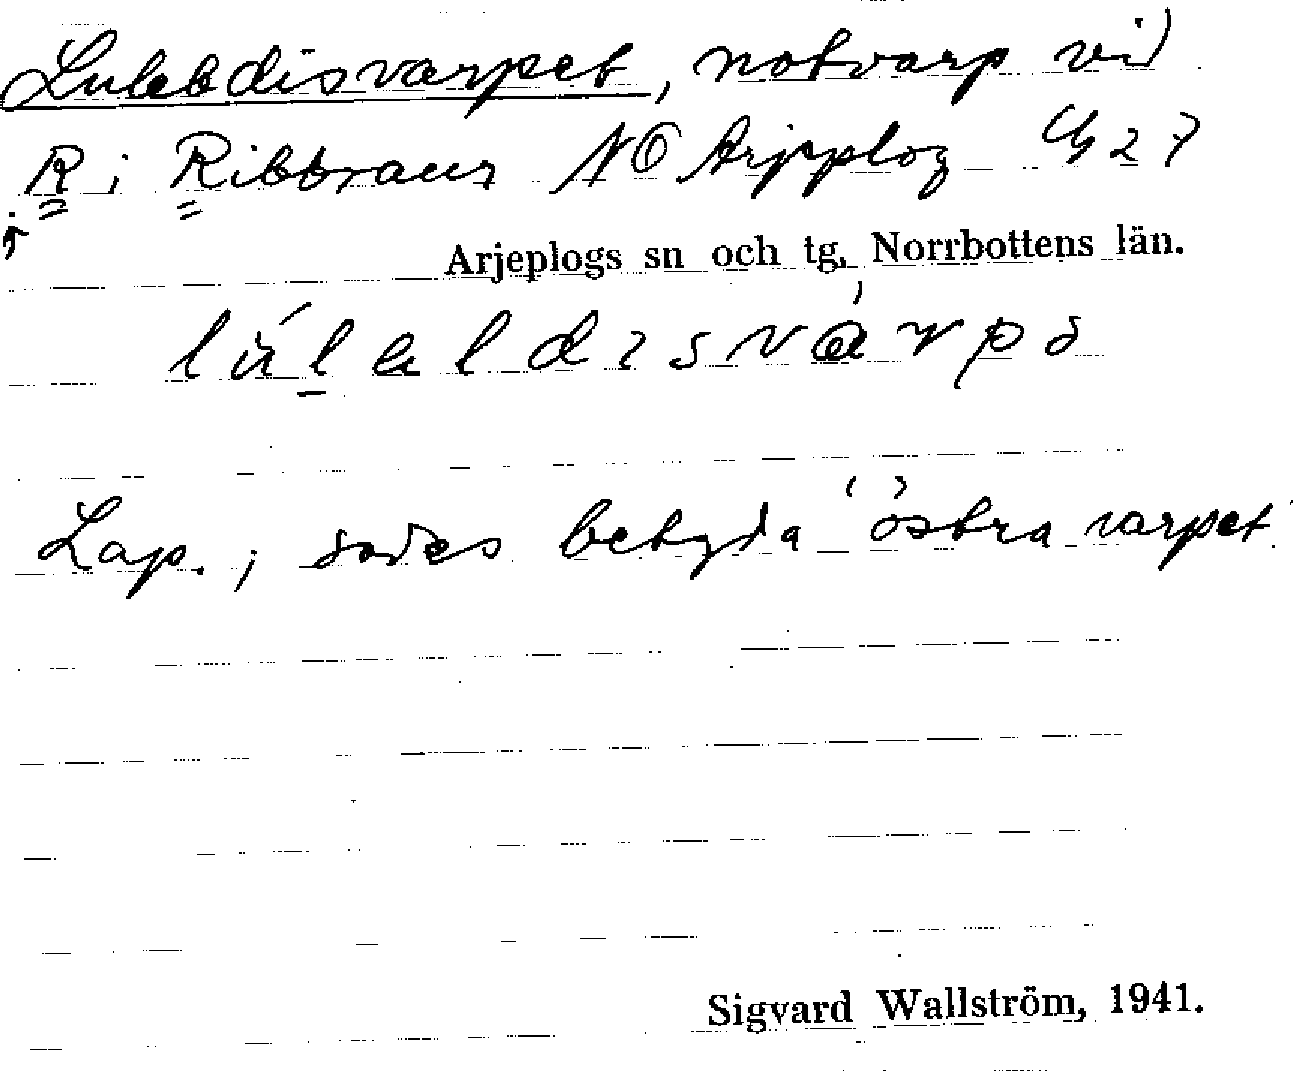 Lulebdisvarpet, notvarp vid
R i Ribbraur NO Arjeplog G 27
Arjeplogs sn och tg, Norrbottens län.
lúlaldisvárpə
Lap.; sades betyda 'östra varpet'
Sigvard Wallström, 1941.